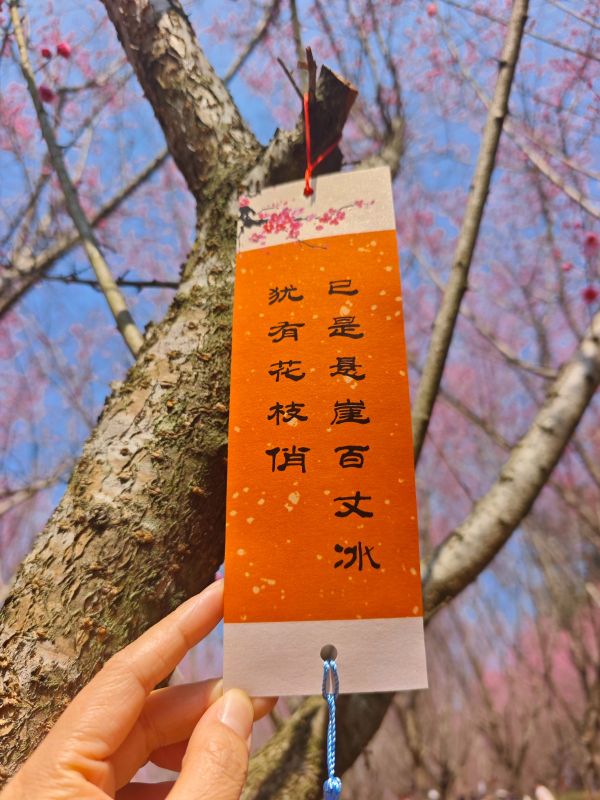 已是悬崖百丈冰
犹有花枝俏